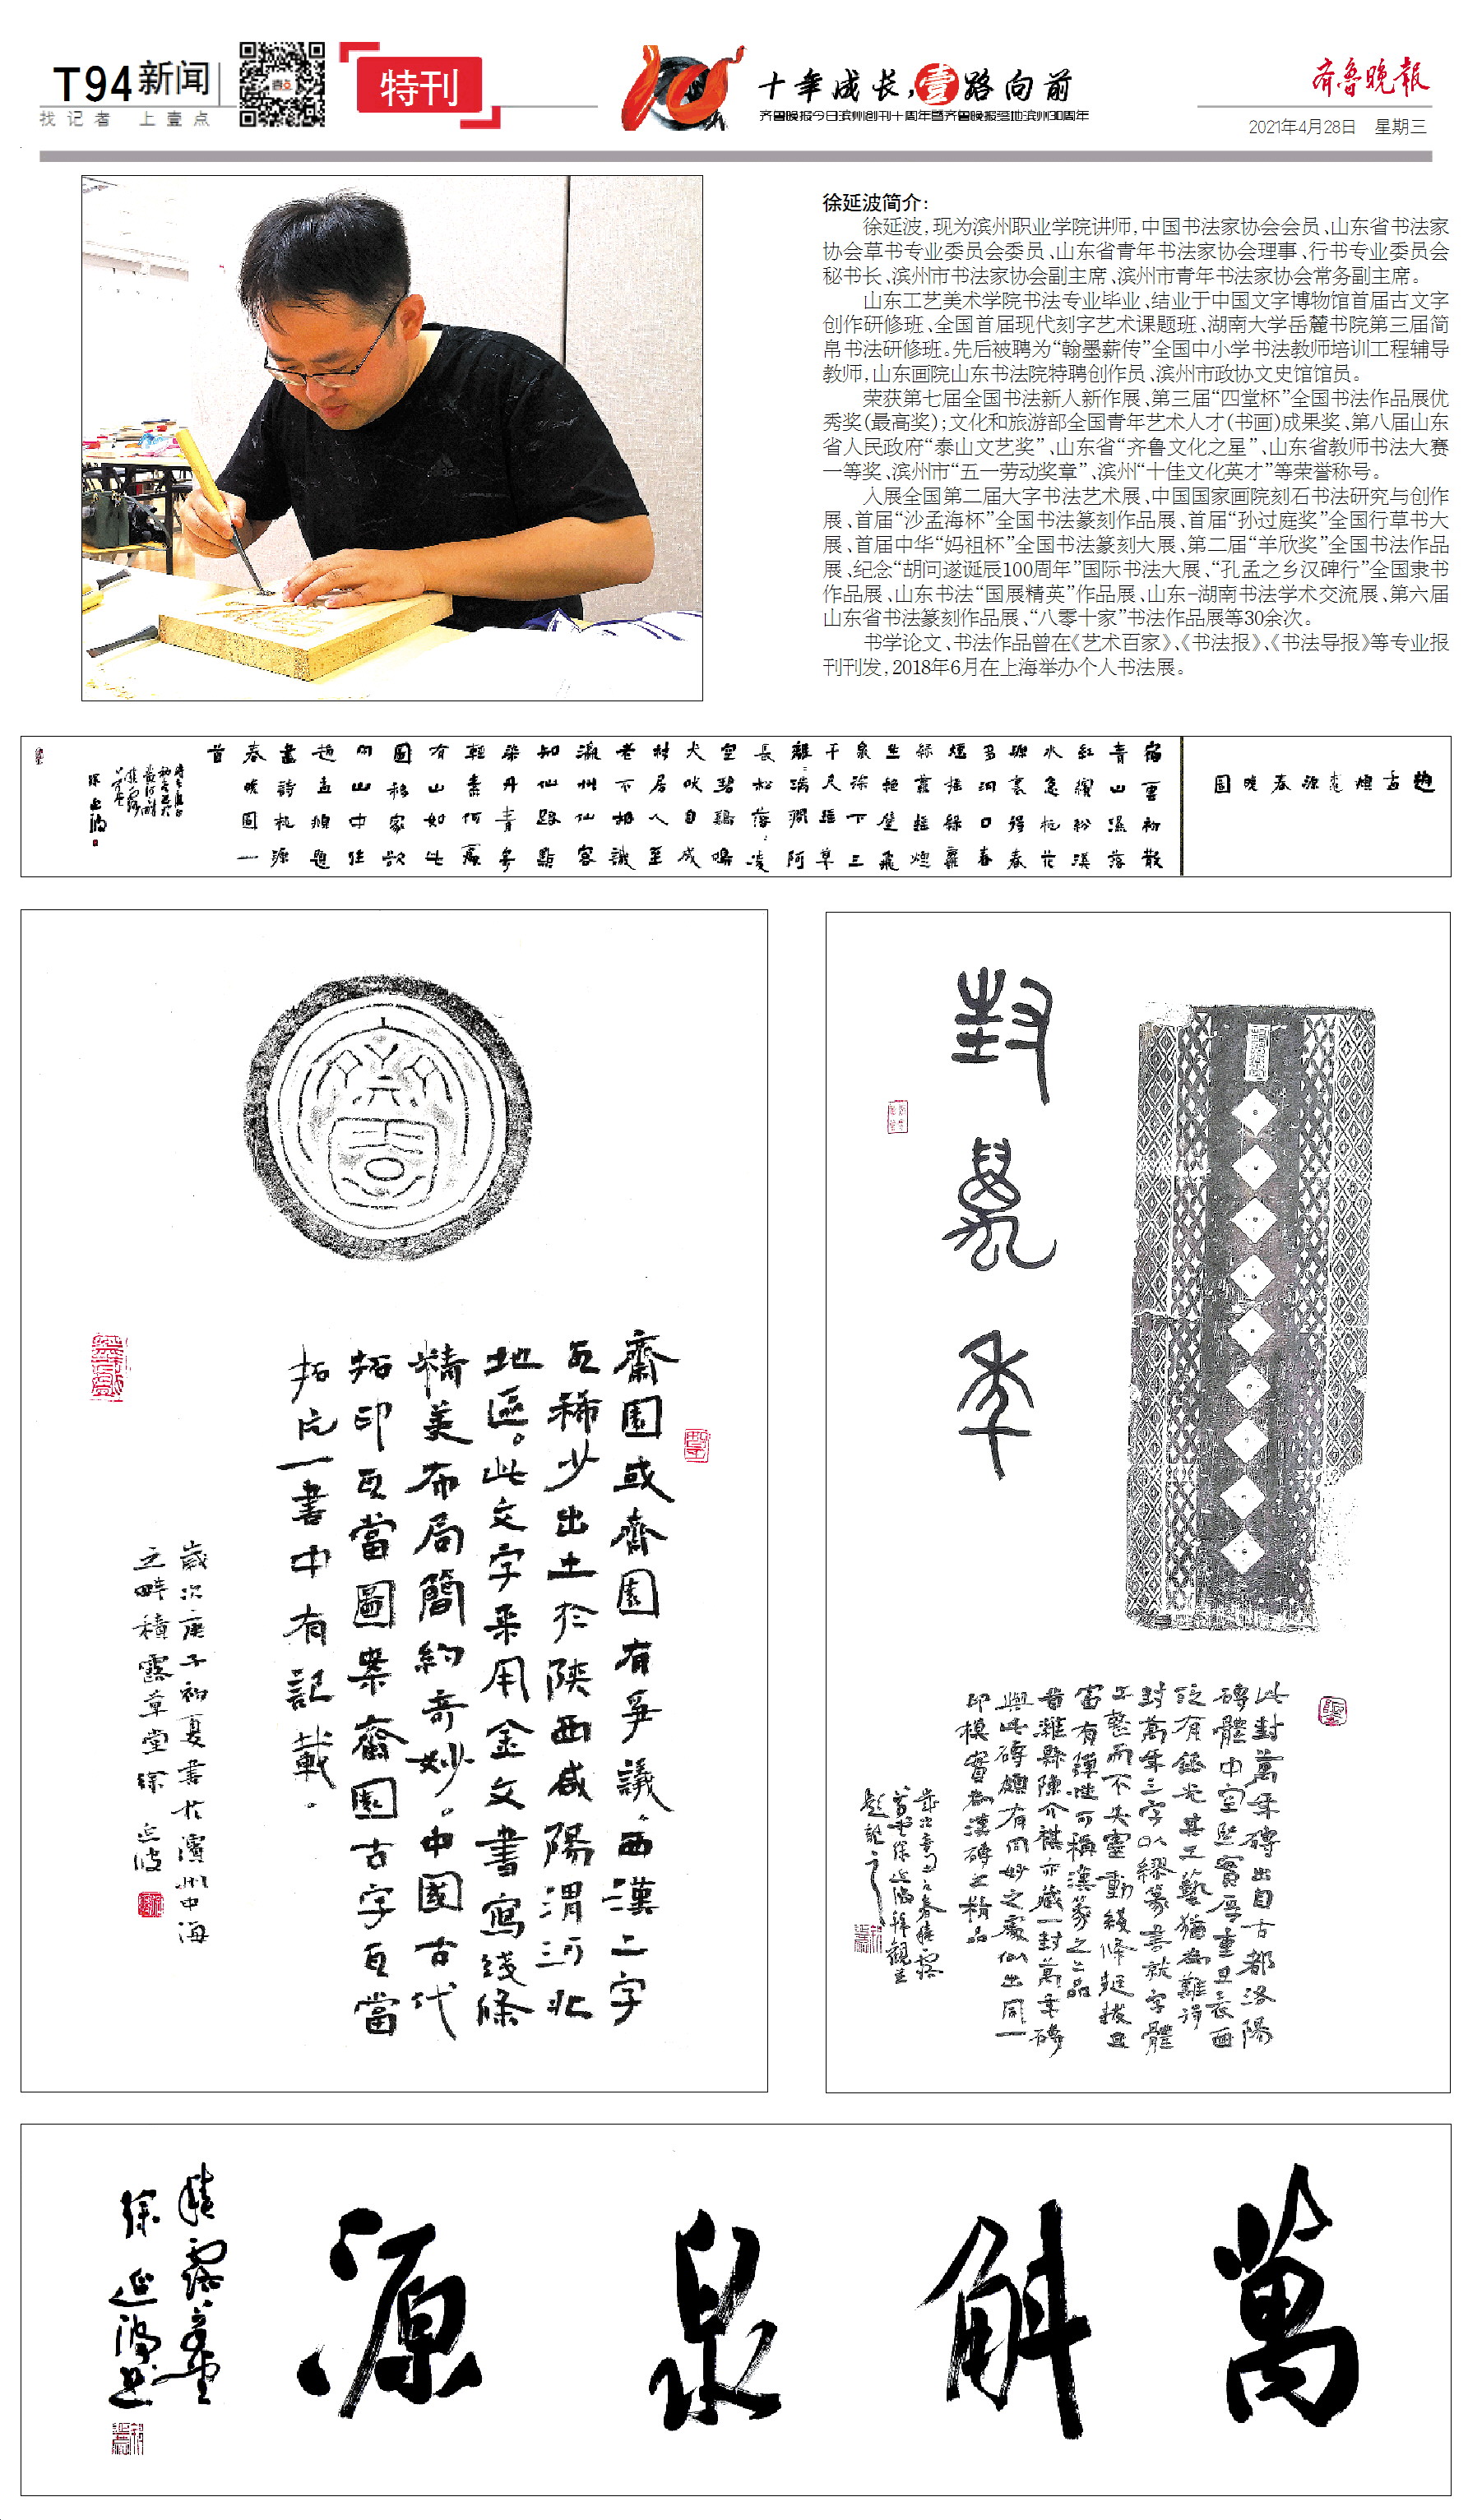 T94 新闻
找记者 上壹点
特刊
十年成长,壹路向前
齐鲁晚报今日滨州创刊十周年暨齐鲁晚报落地滨州30周年
齐鲁晚报
2021年4月28日 星期三
徐延波简介:
徐延波,现为滨州职业学院讲师,中国书法家协会会员、山东省书法家
协会草书专业委员会委员、山东省青年书法家协会理事、行书专业委员会
秘书长、滨州市书法家协会副主席、滨州市青年书法家协会常务副主席。
山东工艺美术学院书法专业毕业、结业于中国文字博物馆首届古文字
创作研修班、全国首届现代刻字艺术课题班、湖南大学岳麓书院第三届简
帛书法研修班。先后被聘为“翰墨薪传”全国中小学书法教师培训工程辅导
教师,山东画院山东书法院特聘创作员、滨州市政协文史馆馆员。
荣获第七届全国书法新人新作展、第三届“四堂杯”全国书法作品展优
秀奖(最高奖);文化和旅游部全国青年艺术人才(书画)成果奖、第八届山东
省人民政府“泰山文艺奖”、山东省“齐鲁文化之星”、山东省教师书法大赛
一等奖、滨州市“五一劳动奖章”、滨州“十佳文化英才”等荣誉称号。
入展全国第二届大字书法艺术展、中国国家画院刻石书法研究与创作
展、首届“沙孟海杯”全国书法篆刻作品展、首届“孙过庭奖”全国行草书大
展、首届中华“妈祖杯”全国书法篆刻大展、第二届“羊欣奖”全国书法作品
展、纪念“胡问遂诞辰100周年”国际书法大展、“孔孟之乡汉碑行”全国隶书
作品展、山东书法“国展精英”作品展、山东-湖南书法学术交流展、第六届
山东省书法篆刻作品展、“八零十家”书法作品展等30余次。
书学论文、书法作品曾在《艺术百家》、《书法报》、《书法导报》等专业报
刊刊发,2018年6月在上海举办个人书法展。
宿雲初散
青山濕落
紅繽紛溪
水急桃花
源裏得春
多洞口春
煙搖綠蘿
綠蘿搖煙
生絕壁飛
泉徐下三
千尺瑤草
離離滿澗阿
長松落落凌
空碧鷄鳴
犬吠自成
村居人至
老不相識
瀛州仙客
知仙路點
染丹青寄
輕素何處
有山如此
圖移家欲
向山中住
趙孟頫題
畫詩桃源
春曉圖一
首
齋園或齋園有爭議。西漢二字
瓦稀少出土於陝西咸陽渭河北
地區。此文字采用金文書寫綫條
精美布局簡約奇妙。中國古代
拓印瓦當圖案齋園古字瓦當
拓片一書中有記載。
歲次庚子初夏書於濱州中海
之畔積露草堂徐延波
封萬年
此封萬年磚出自古都洛陽
磚體中空堅實厚重且表面
泛有銀光其工藝猶為難得
封萬年三字以繆篆書就字體
工整而不失靈動綫條挺拔且
富有彈性可稱漢篆之上品
昔濰縣陳介祺亦藏一封萬年磚
與此磚頗有同妙之處似出同一
印模實為漢磚之精品
萬斛泉源
積露草堂
徐延波書